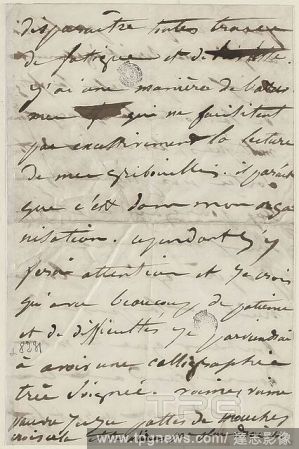 disparaître toutes traces
de fatigue et de
j'ai une manière de
mes qui ne facilitent
pas excessivement la lecture
de mes gribouilles. il paraît
que c'est dans mon orga
nisation. cependant j'y
ferai attention et je crois
qu'avec beaucoup de patience
et de difficultés je parviendrai
à avoir une calligraphie
très soignée.
pattes de mouches
18281
TPG
www.tpgnews.com/ 達志影像